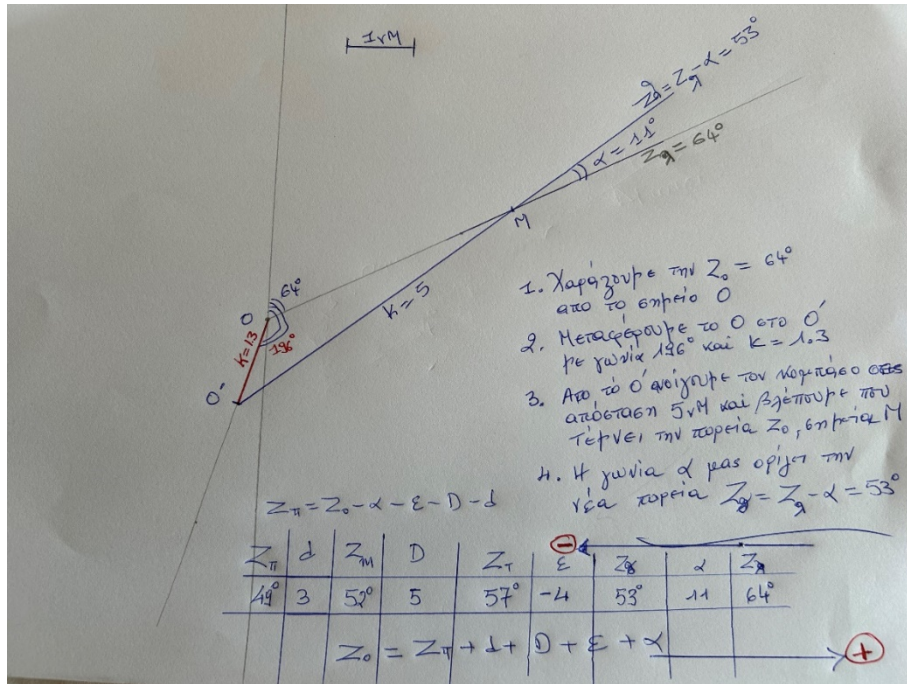 1νΜ
Zλ - α = 53°
α = 11°
Zλ = 64°
M
64°
O
K = 5
K=1.3
196°
O'
1. Χαράζουμε την Z₀ = 64°
απο το σημείο O
2. Μεταφέρουμε το O στο O'
με γωνία 196° και K = 1.3
3. Απο το O' ανοίγουμε τον κομπάσο
απόσταση 5νΜ και βλέπουμε που
τέμνει την πορεία Z₀, σημείο M
4. Η γωνία α μας ορίζει την
νέα πορεία = Zλ - α = 53°
Zπ = Z₀ - α - ε - D - d
−
Zπ d Zm D Zτ ε α
49° 3 52° 5 57° -4 53° 11 64°
Z₀ = Zπ + d + D + ε + α
+